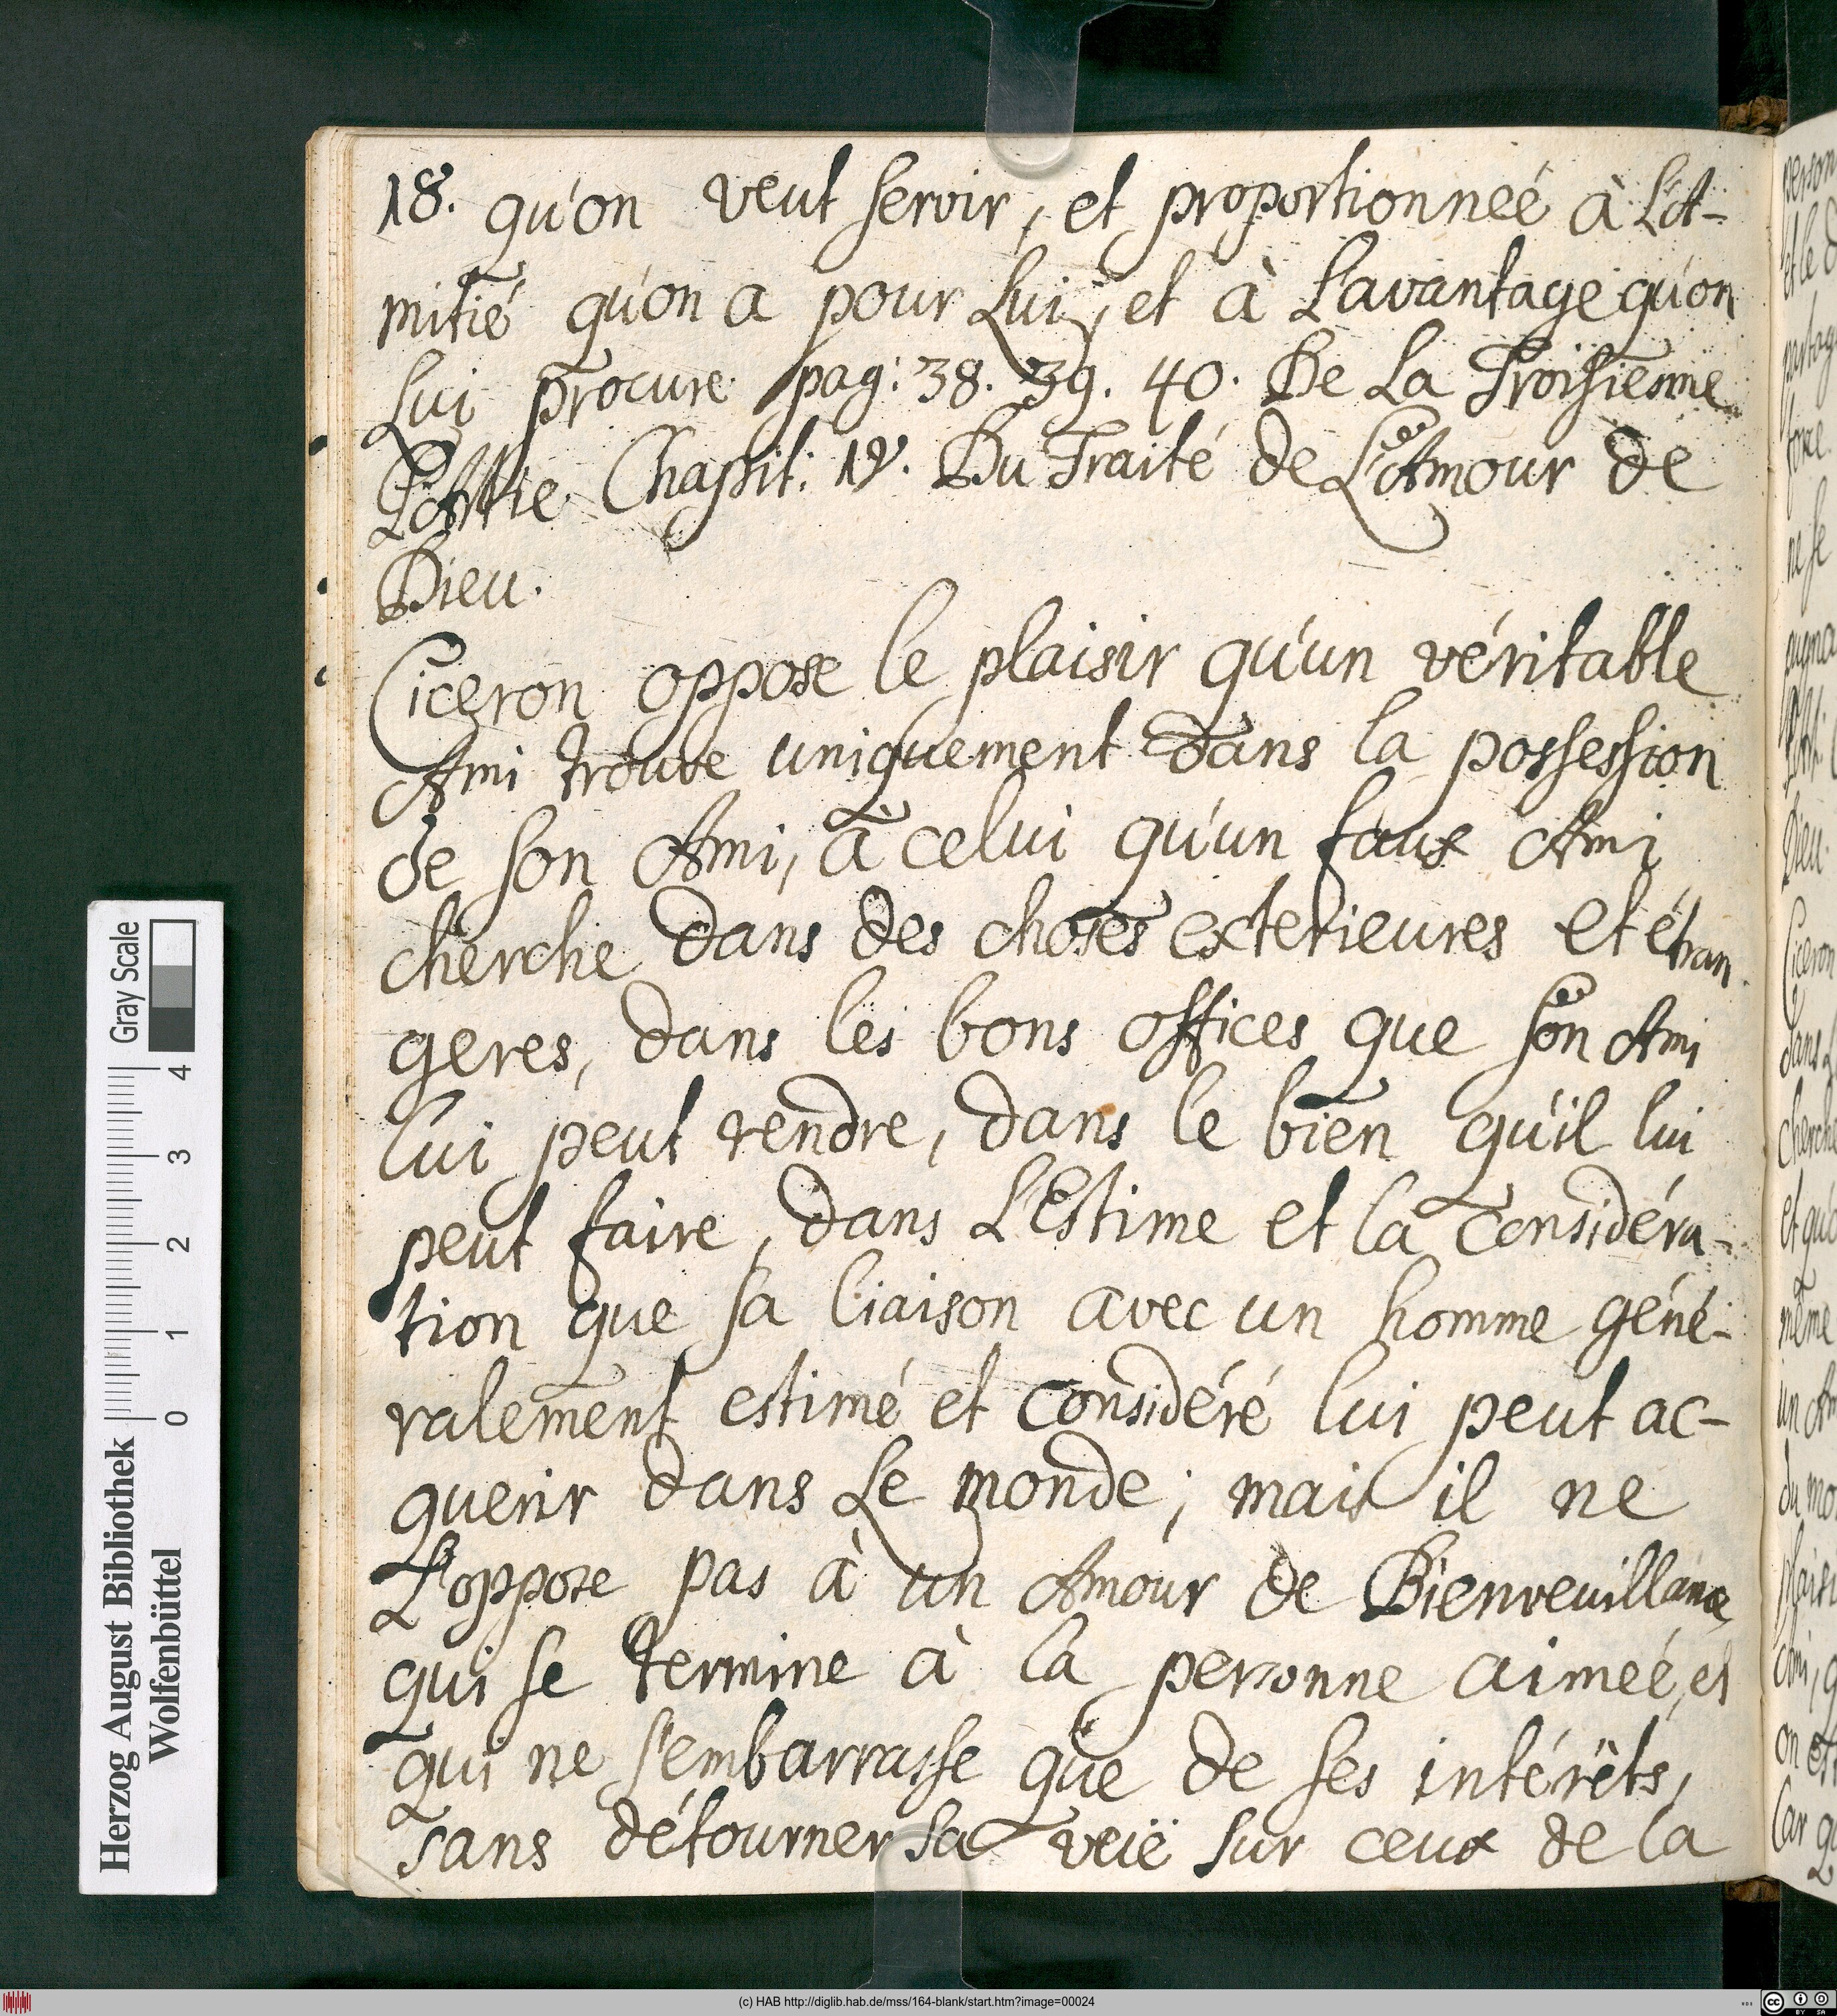 18. qu'on veut servir, et proportionneé à L'A-
mitié qu'on a pour Lui, et à L'avantage qu'on
Lui procure pag: 38. 39. 40. De La Troisiesme
PArtie Chapit: 19. Du Traité de L'Amour de
Dieu.
Ciceron oppose le plaisir qu'un véritable
Ami trouve uniquement dans la possession
de son Ami, à celui qu'un faux Ami
cherche dans des choses exterieures et étran
geres, dans les bons offices que son Ami
lui peut rendre, dans le bien qu'il lui
peut faire, dans L'Estime et la considéra-
tion que sa liaison avec un homme géné-
ralement estimé et considéré lui peut ac-
querir dans Le monde; mais il ne
L'oppose pas à un Amour de Bienveuillance
qui se termine à la personne aimeé, et
qui ne s'embarrasse que de ses intérêts,
sans détourner sa veüe sur ceux de la
Gray Scale
4 3 2 1 0
Herzog August Bibliothek
Wolfenbüttel
(c) HAB http://diglib.hab.de/mss/164-blank/start.htm?image=00024